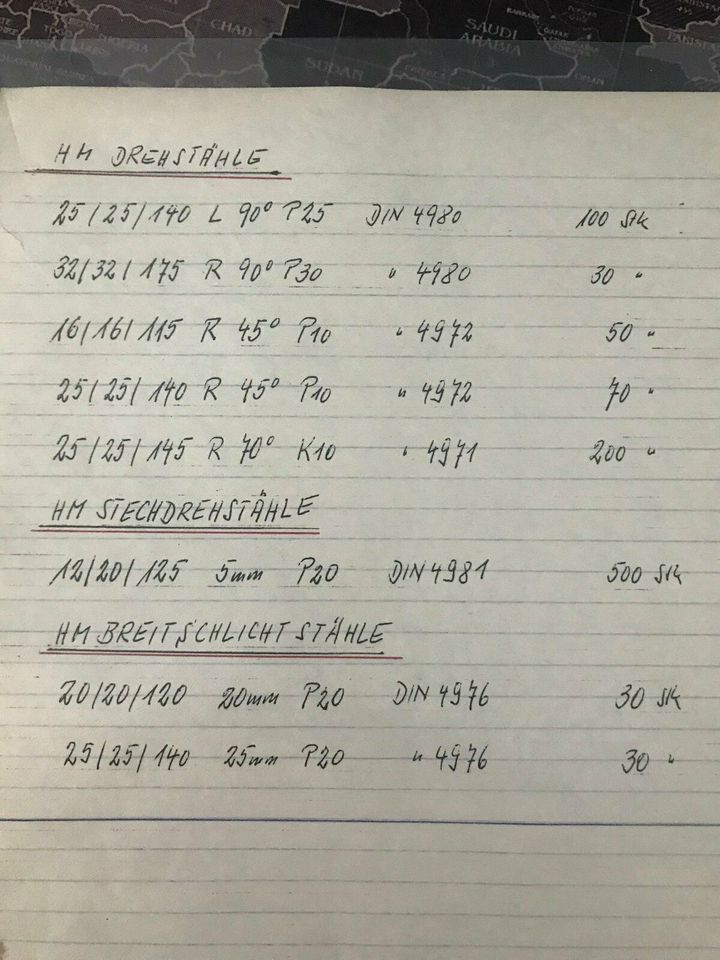 CHAD
SAUDI
ARABIA
SUDAN
HM DREHSTÄHLE
25/25/140 L 90° P25 DIN 4980 100 Stk
32/32/175 R 90° P30 " 4980 30 "
16/16/115 R 45° P10 " 4972 50 "
25/25/140 R 45° P10 " 4972 70 "
25/25/145 R 70° K10 " 4971 200 "
HM STECHDREHSTÄHLE
12/20/125 5mm P20 DIN 4981 500 Stk
HM BREITSCHLICHTSTÄHLE
20/20/120 20mm P20 DIN 4976 30 Stk
25/25/140 25mm P20 " 4976 30 "